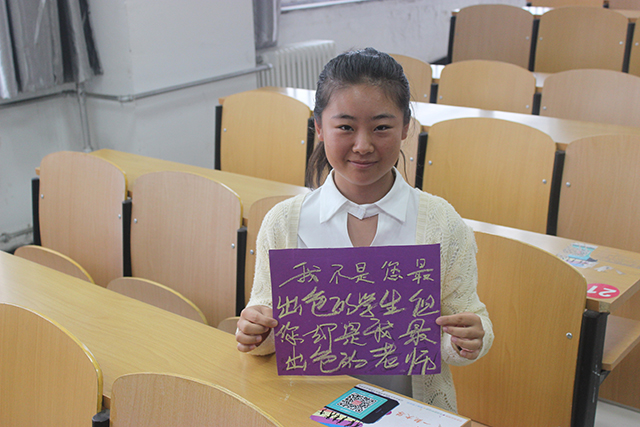 我不是您最
出色的学生但
您却是我最
出色的老师
21